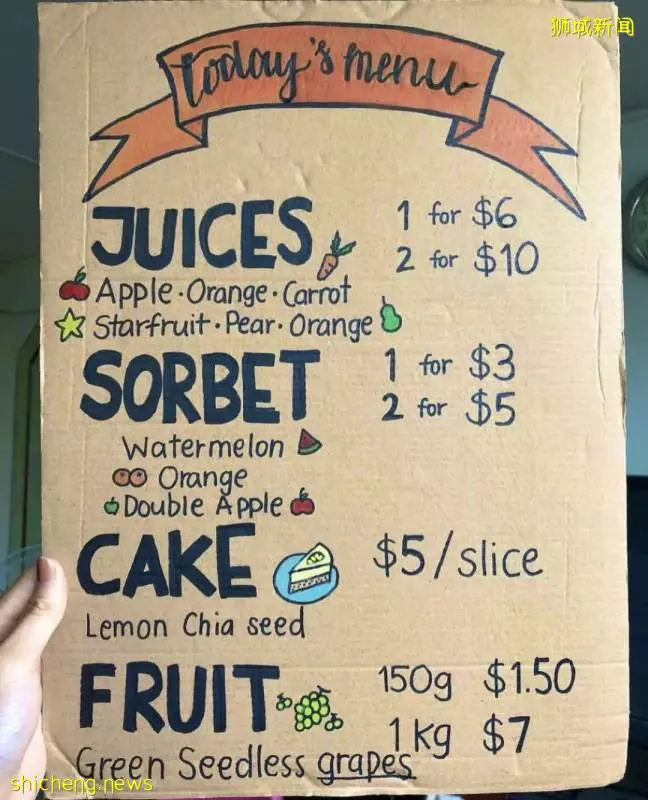 狮城新闻
today's menu
JUICES 1 for $6
2 for $10
Apple·Orange·Carrot
Starfruit·Pear·Orange
SORBET 1 for $3
2 for $5
Watermelon
Orange
Double Apple
CAKE $5/slice
Lemon Chia seed
FRUIT 150g $1.50
1kg $7
Green Seedless grapes
shicheng.news